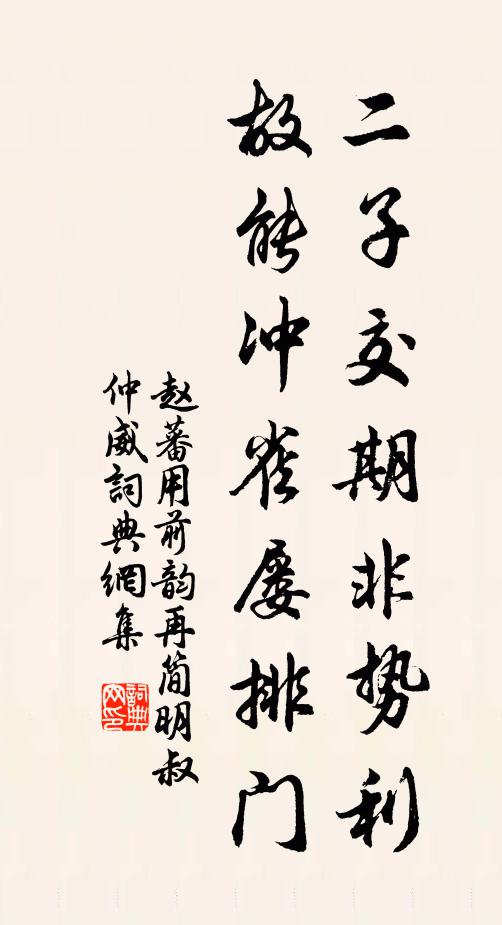 二子交期非势利
故能冲雀屡排门
赵蕃用前韵再简明叔
仲威詞典網集
詞典网印